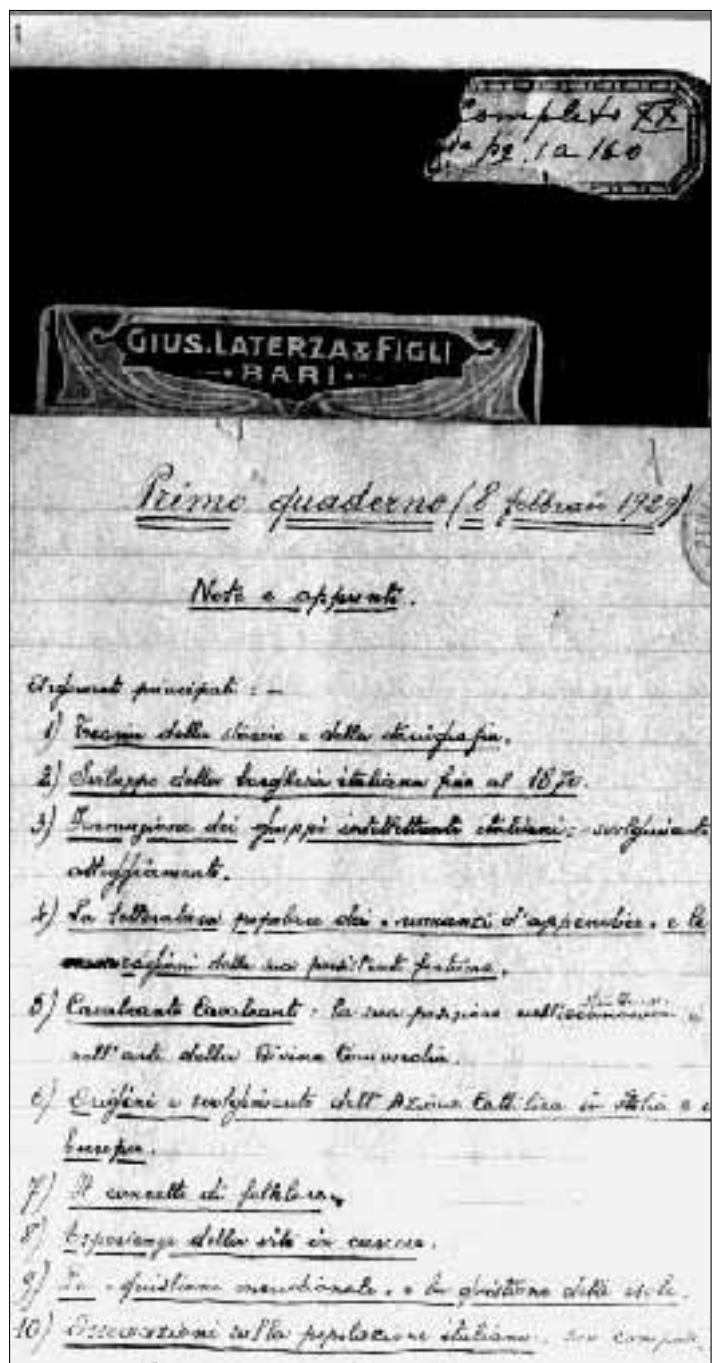 1
Completo XX
da pg. 1 a 160
GIUS. LATERZA & FIGLI
• BARI •
Primo quaderno (8 febbraio 1929)
Note e appunti.
Argomenti principali: –
1) Teoria della storia e della storiografia.
2) Sviluppo della borghesia italiana fino al 1870.
3) Formazione dei gruppi intellettuali italiani: – svolgimento
atteggiamenti.
4) La letteratura popolare dei «romanzi d'appendice» e le
ragioni della sua persistente fortuna.
5) Cavalcante Cavalcanti: la sua posizione nell'economia e
nell'arte della Divina Commedia.
6) Origini e svolgimento dell'Azione Cattolica in Italia e
Europa.
7) Il concetto di folklore.
8) Esperienze della vita in carcere.
9) La «quistione meridionale» e la quistione delle isole.
10) Osservazioni sulla popolazione italiana: sua